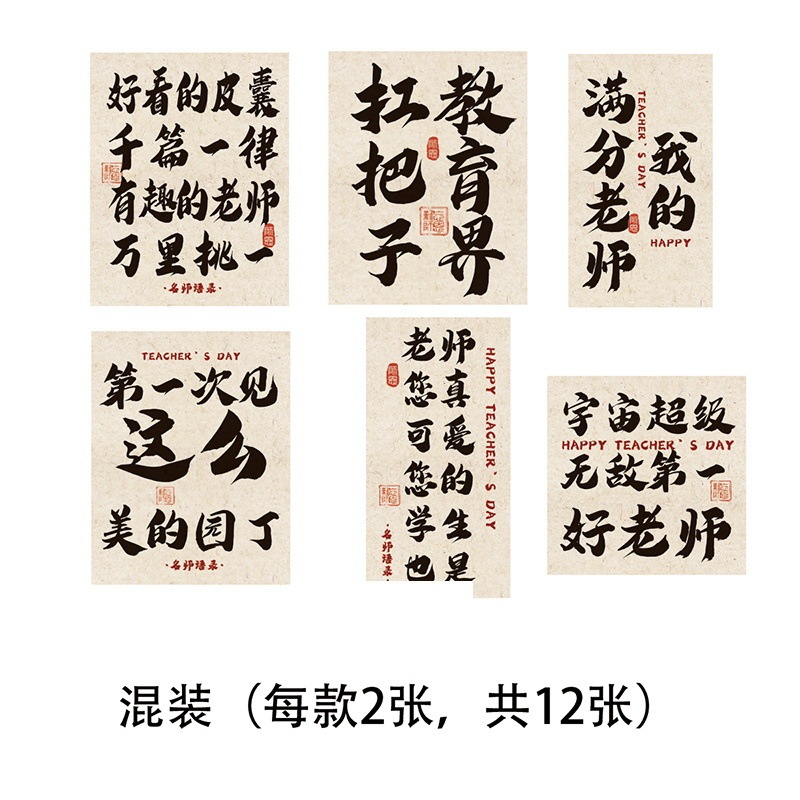 好看的皮囊
千篇一律
有趣的老师
万里挑一
·名师语录·
教育界
扛把子
我的
HAPPY
TEACHER'S DAY
满分老师
TEACHER'S DAY
第一次见
这么
美的园丁
·名师语录·
老师
您真
可爱
您的
学生
也是
HAPPY TEACHER'S DAY
·名师语录·
宇宙超级
HAPPY TEACHER'S DAY
无敌第一
好老师
混装（每款2张，共12张）